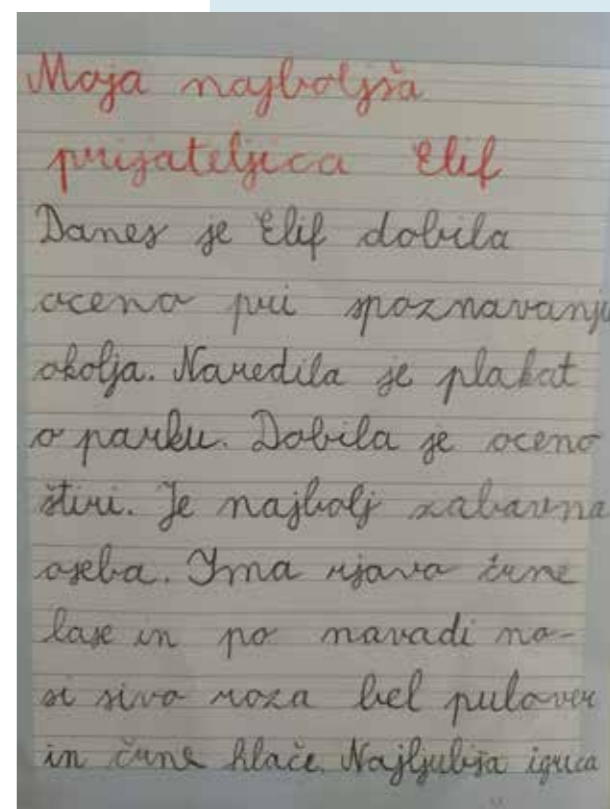 Moja najboljša
prijateljica Elif
Danes je Elif dobila
oceno pri spoznavanju
okolja. Naredila je plakat
o parku. Dobila je oceno
štiri. Je najbolj zabavna
oseba. Ima rjavo črne
lase in po navadi no-
si sivo roza bel pulover
in črne hlače. Najljubša igrica